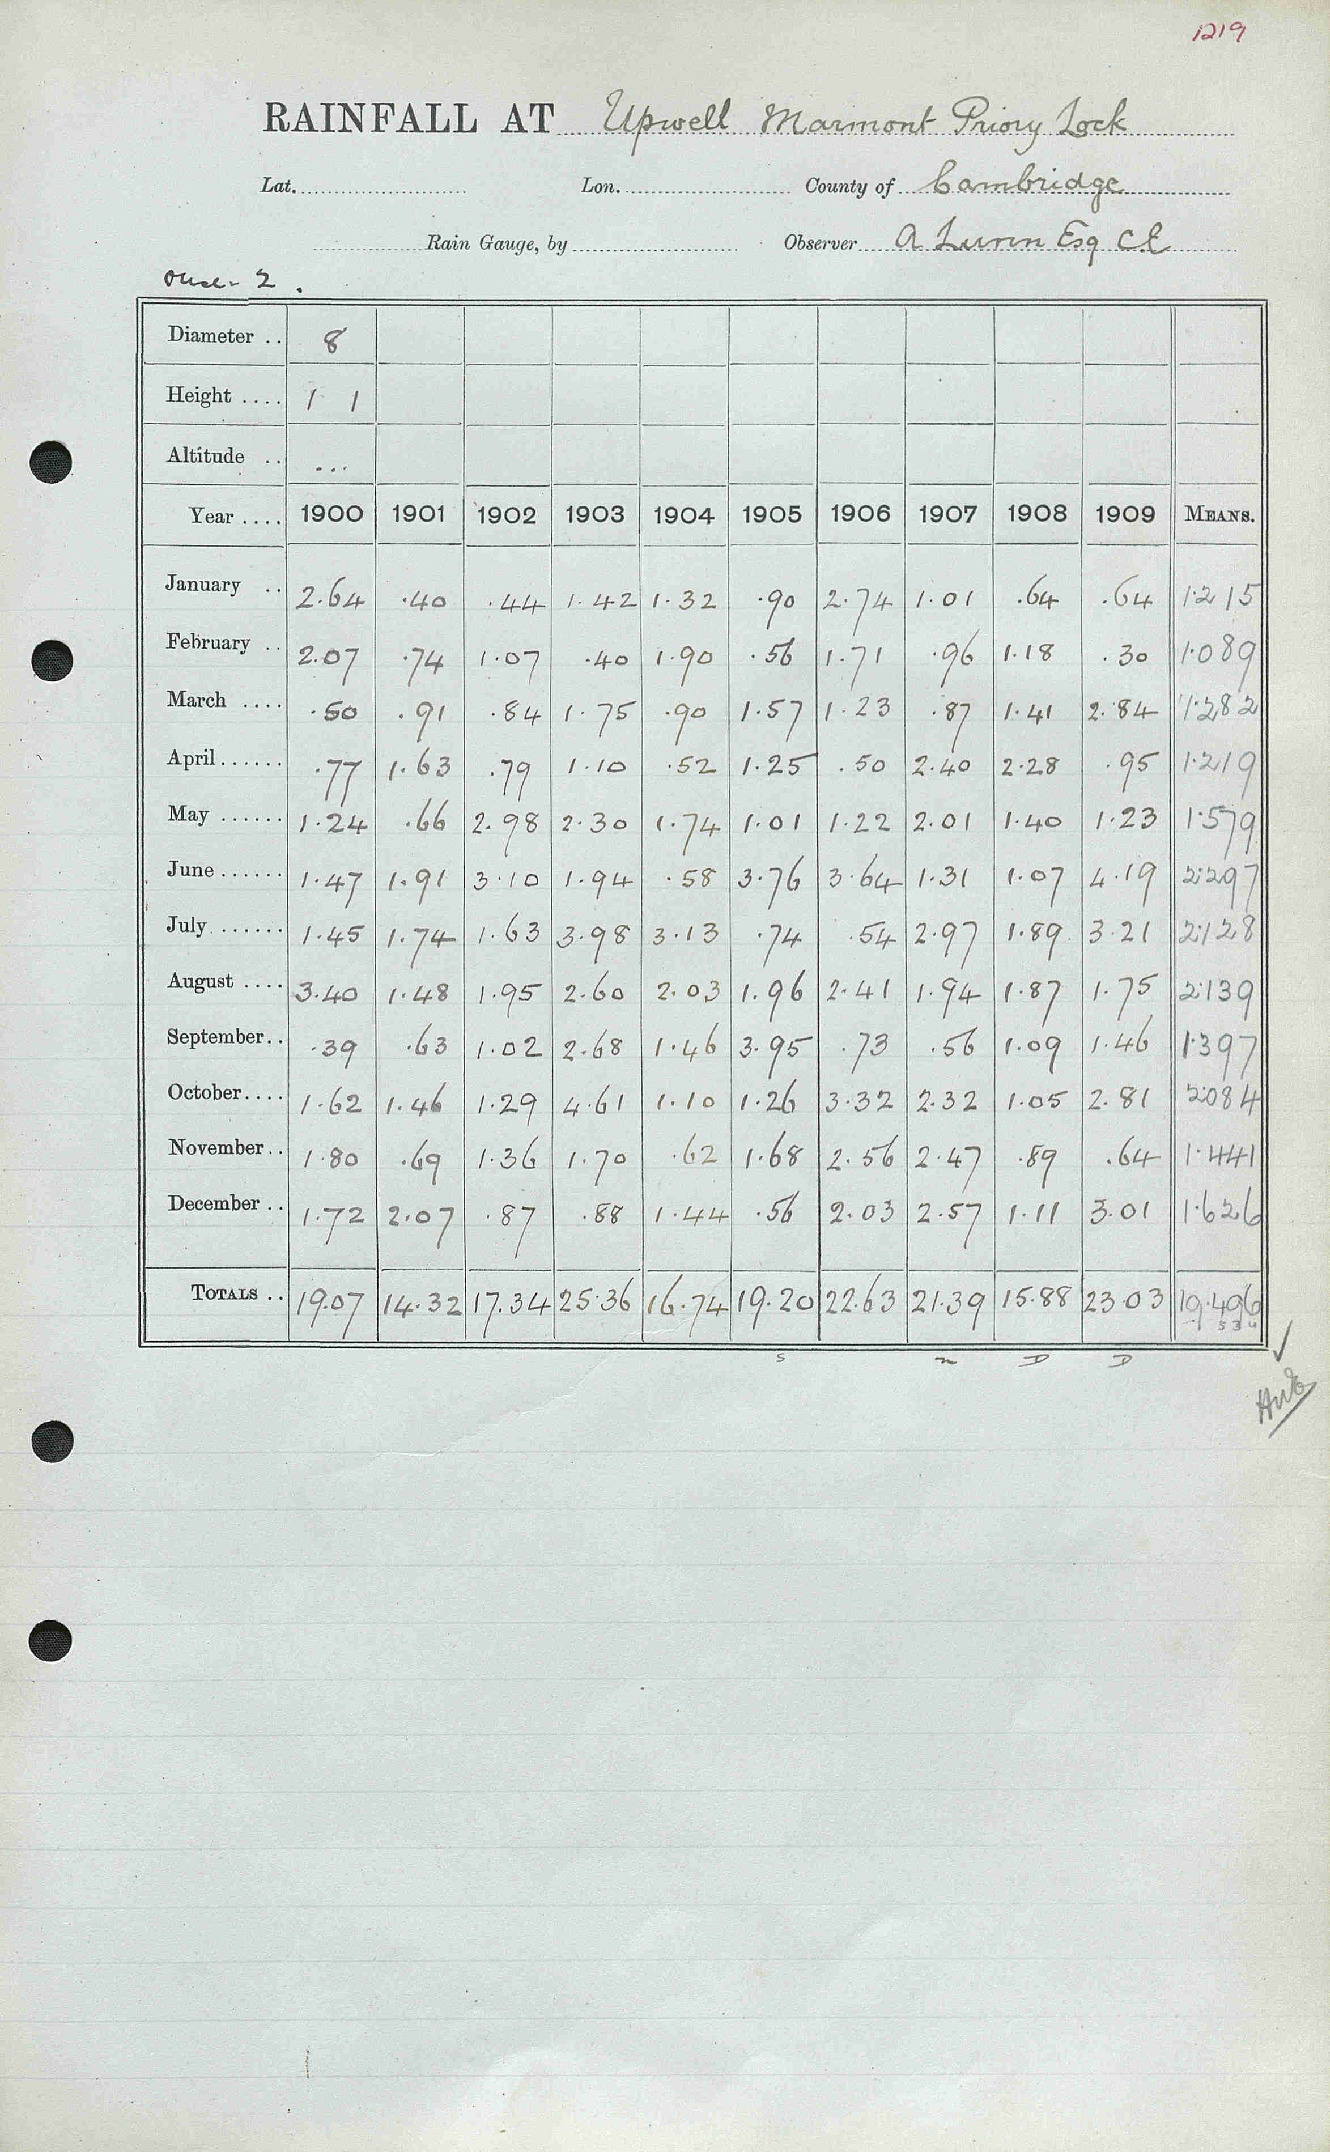 1219
RAINFALL AT Upwell Marmont Priory Lock
Lat. Lon. County of Cambridge
Rain Gauge, by Observer A Lunn Esq C.E
Ouse 2.
Diameter .. 8
Height .... 1 1
Altitude .. ...
Year .... 1900 1901 1902 1903 1904 1905 1906 1907 1908 1909 MEANS.
January .. 2.64 .40 .44 1.42 1.32 .90 2.74 1.01 .64 .64 1.215
February .. 2.07 .74 1.07 .40 1.90 .56 1.71 .96 1.18 .30 1.089
March .... .50 .91 .84 1.75 .90 1.57 1.23 .87 1.41 2.84 1.282
April ...... .77 1.63 .79 1.10 .52 1.25 .50 2.40 2.28 .95 1.219
May ...... 1.24 .66 2.98 2.30 1.74 1.01 1.22 2.01 1.40 1.23 1.579
June ...... 1.47 1.91 3.10 1.94 .58 3.76 3.64 1.31 1.07 4.19 2.297
July ....... 1.45 1.74 1.63 3.98 3.13 .74 .54 2.97 1.89 3.21 2.128
August .... 3.40 1.48 1.95 2.60 2.03 1.96 2.41 1.94 1.87 1.75 2.139
September.. .39 .63 1.02 2.68 1.46 3.95 .73 .56 1.09 1.46 1.397
October.... 1.62 1.46 1.29 4.61 1.10 1.26 3.32 2.32 1.05 2.81 2.084
November.. 1.80 .69 1.36 1.70 .62 1.68 2.56 2.47 .89 .64 1.441
December .. 1.72 2.07 .87 .88 1.44 .56 2.03 2.57 1.11 3.01 1.626
TOTALS .. 19.07 14.32 17.34 25.36 16.74 19.20 22.63 21.39 15.88 23.03 19.496
s n D D